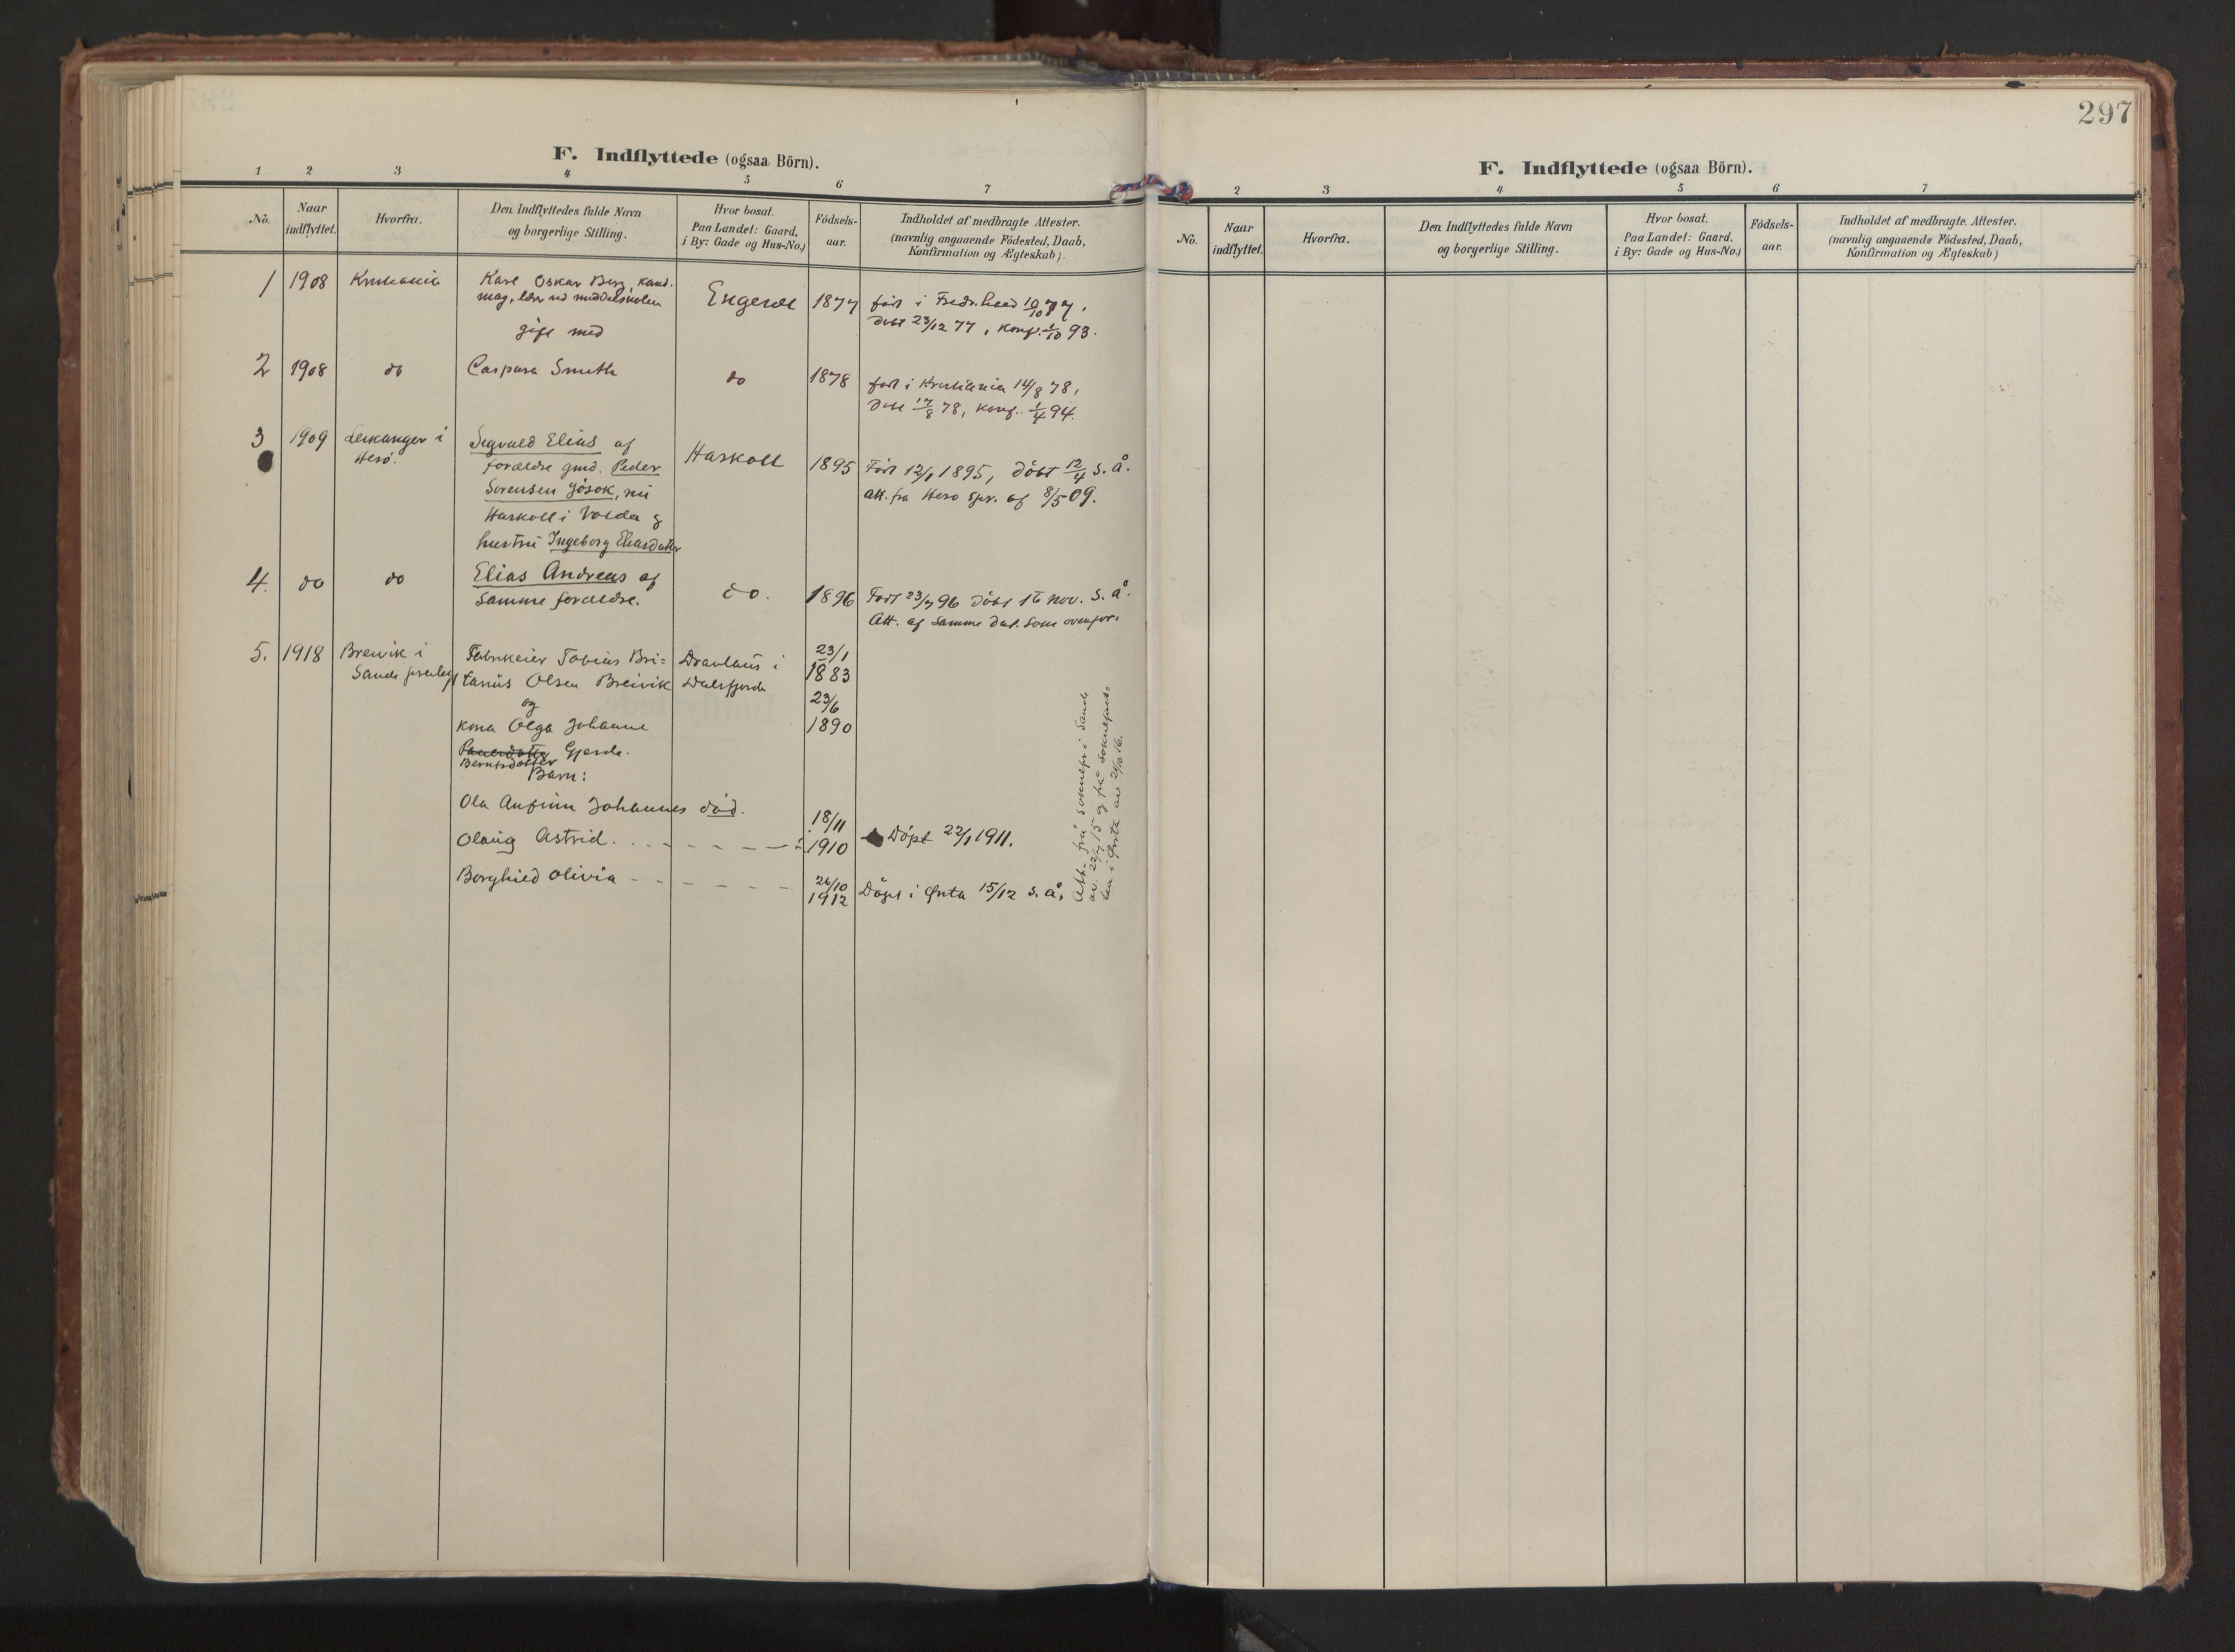 297
F. Indflyttede (ogsaa Börn).
1 2 3 4 5 6 7
No.
Naar indflyttet.
Hvorfra.
Den Indflyttedes fulde Navn
og borgerlige Stilling.
Hvor bosat.
Paa Landet: Gaard,
i By: Gade og Hus-No.)
Födsels-
aar.
Indholdet af medbragte Attester.
(navnlig angaaende Födested, Daab,
Konfirmation og Ægteskab).
1 1908 Kristiania
Karl Oskar Berg, kand.
mag., lærer ved middelskolen
gift med
1877
født i Fredr.hald
døbt 23/12 77, konf. 1/10 93.
2 1908 do Caspara Smith do 1878
født i Kristiania 14/8 78,
døbt 17/8 78, konf. 1/4 94.
3 1909 Leikanger i
Herö.
Sigvald Elias af
forældre gmd. Peder
Sørensen Jösok, nu
Haskoll i Volda og
hustru Ingeborg Eliasdatter
Haskoll 1895
Født 12/1 1895, döbt 12/4 s. å.
Att. fra Herø spr. af 8/5 09.
4. do do
Elias Andreas af
samme forældre.
do. 1896
Født 23/7 96 döbt 1 nov. s. å.
Att. af samme dat. som ovenfor.
5. 1918 Breivik i
Sande
Fabrikeier Tobias Bri=
tanius Olsen Breivik
og
kona Olga Johanne
Gjerde.
Berntsdotter
Barn:
Dravlaus i
Dalsfjorde
23/1
1883
23/6
1890
Ola Anfinn Johannes död.
Olaug Astrid. 18/11
1910 Döpt 22/1 1911.
Borghild Olivia 26/10
1912 Döpt i Ørsta 15/12 s. å.
Att. frå soknepr. i Sande
av 22/7 15 og frå soknepres-
ten i Ørsta av 24/10 16.
F. Indflyttede (ogsaa Börn).
2 3 4 5 6 7
No.
Naar indflyttet.
Hvorfra.
Den Indflyttedes fulde Navn
og borgerlige Stilling.
Hvor bosat.
Paa Landet: Gaard,
i By: Gade og Hus-No.)
Födsels-
aar.
Indholdet af medbragte Attester.
(navnlig angaaende Födested, Daab,
Konfirmation og Ægteskab)